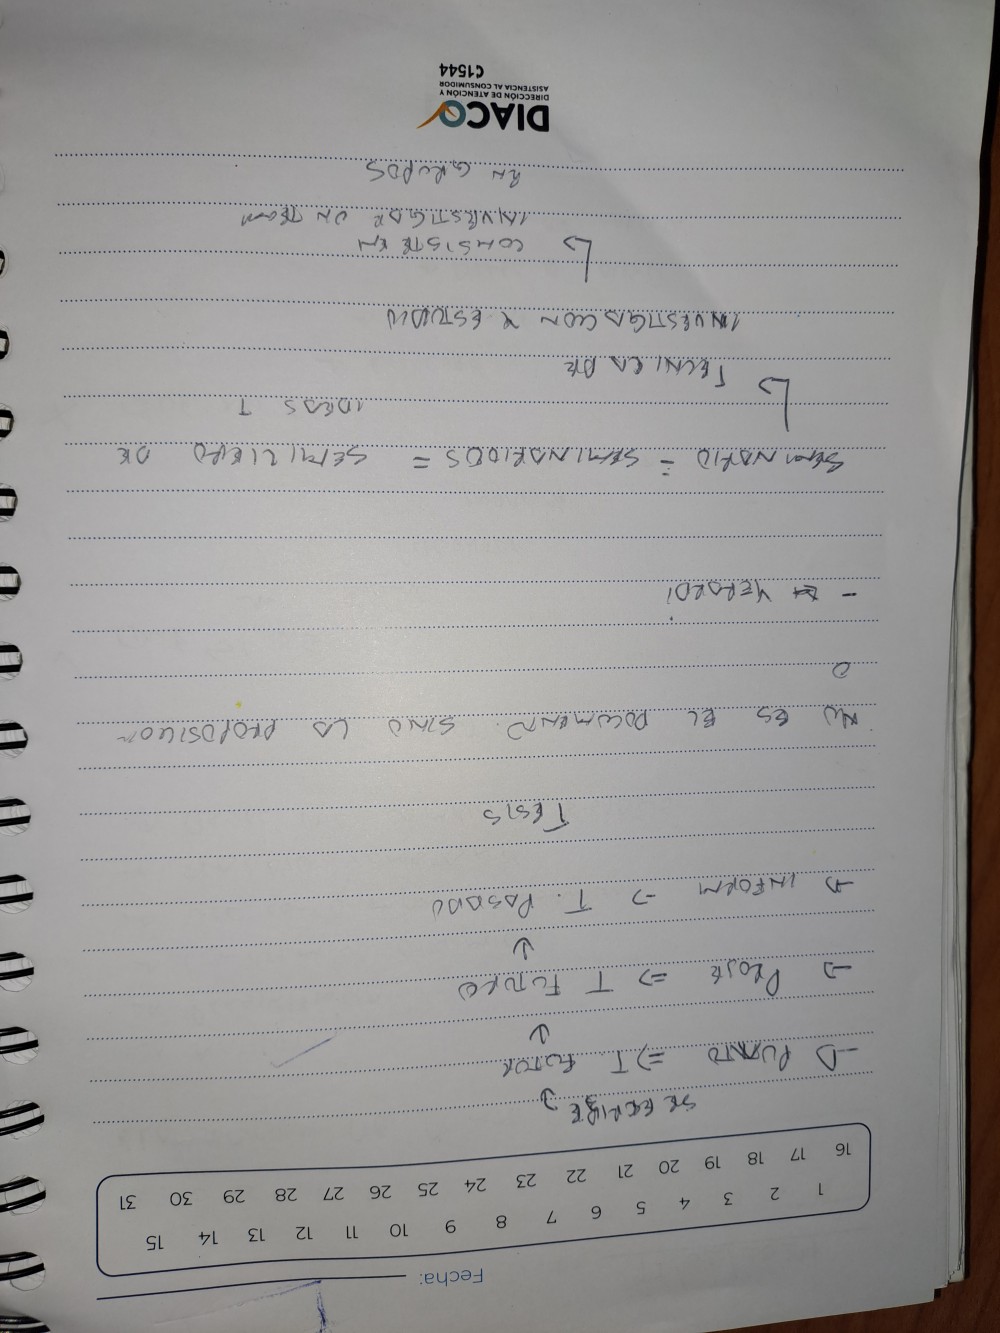 Fecha:
1 2 3 4 5 6 7 8 9 10 11 12 13 14 15
16 17 18 19 20 21 22 23 24 25 26 27 28 29 30 31
SE ECRIBE
PUNTO ⇒ T. FUTOR
↓
→ ⇒ T FUTURO
↓
→ INFORM → T. PASADO
TESIS
NO ES EL DOCUMENTO. SINO LA PROPOSICION
O
-
SEMINARIO = SEMINARIOS = SEMILLERO DE
IDEAS
↳ TECNICA DE
INVESTIGACION Y ESTUDIO
↳ CONSISTE EN
INVESTIGAR UN TEMA
EN GRUPOS
DIACO
DIRECCIÓN DE ATENCIÓN Y
ASISTENCIA AL CONSUMIDOR
C1544